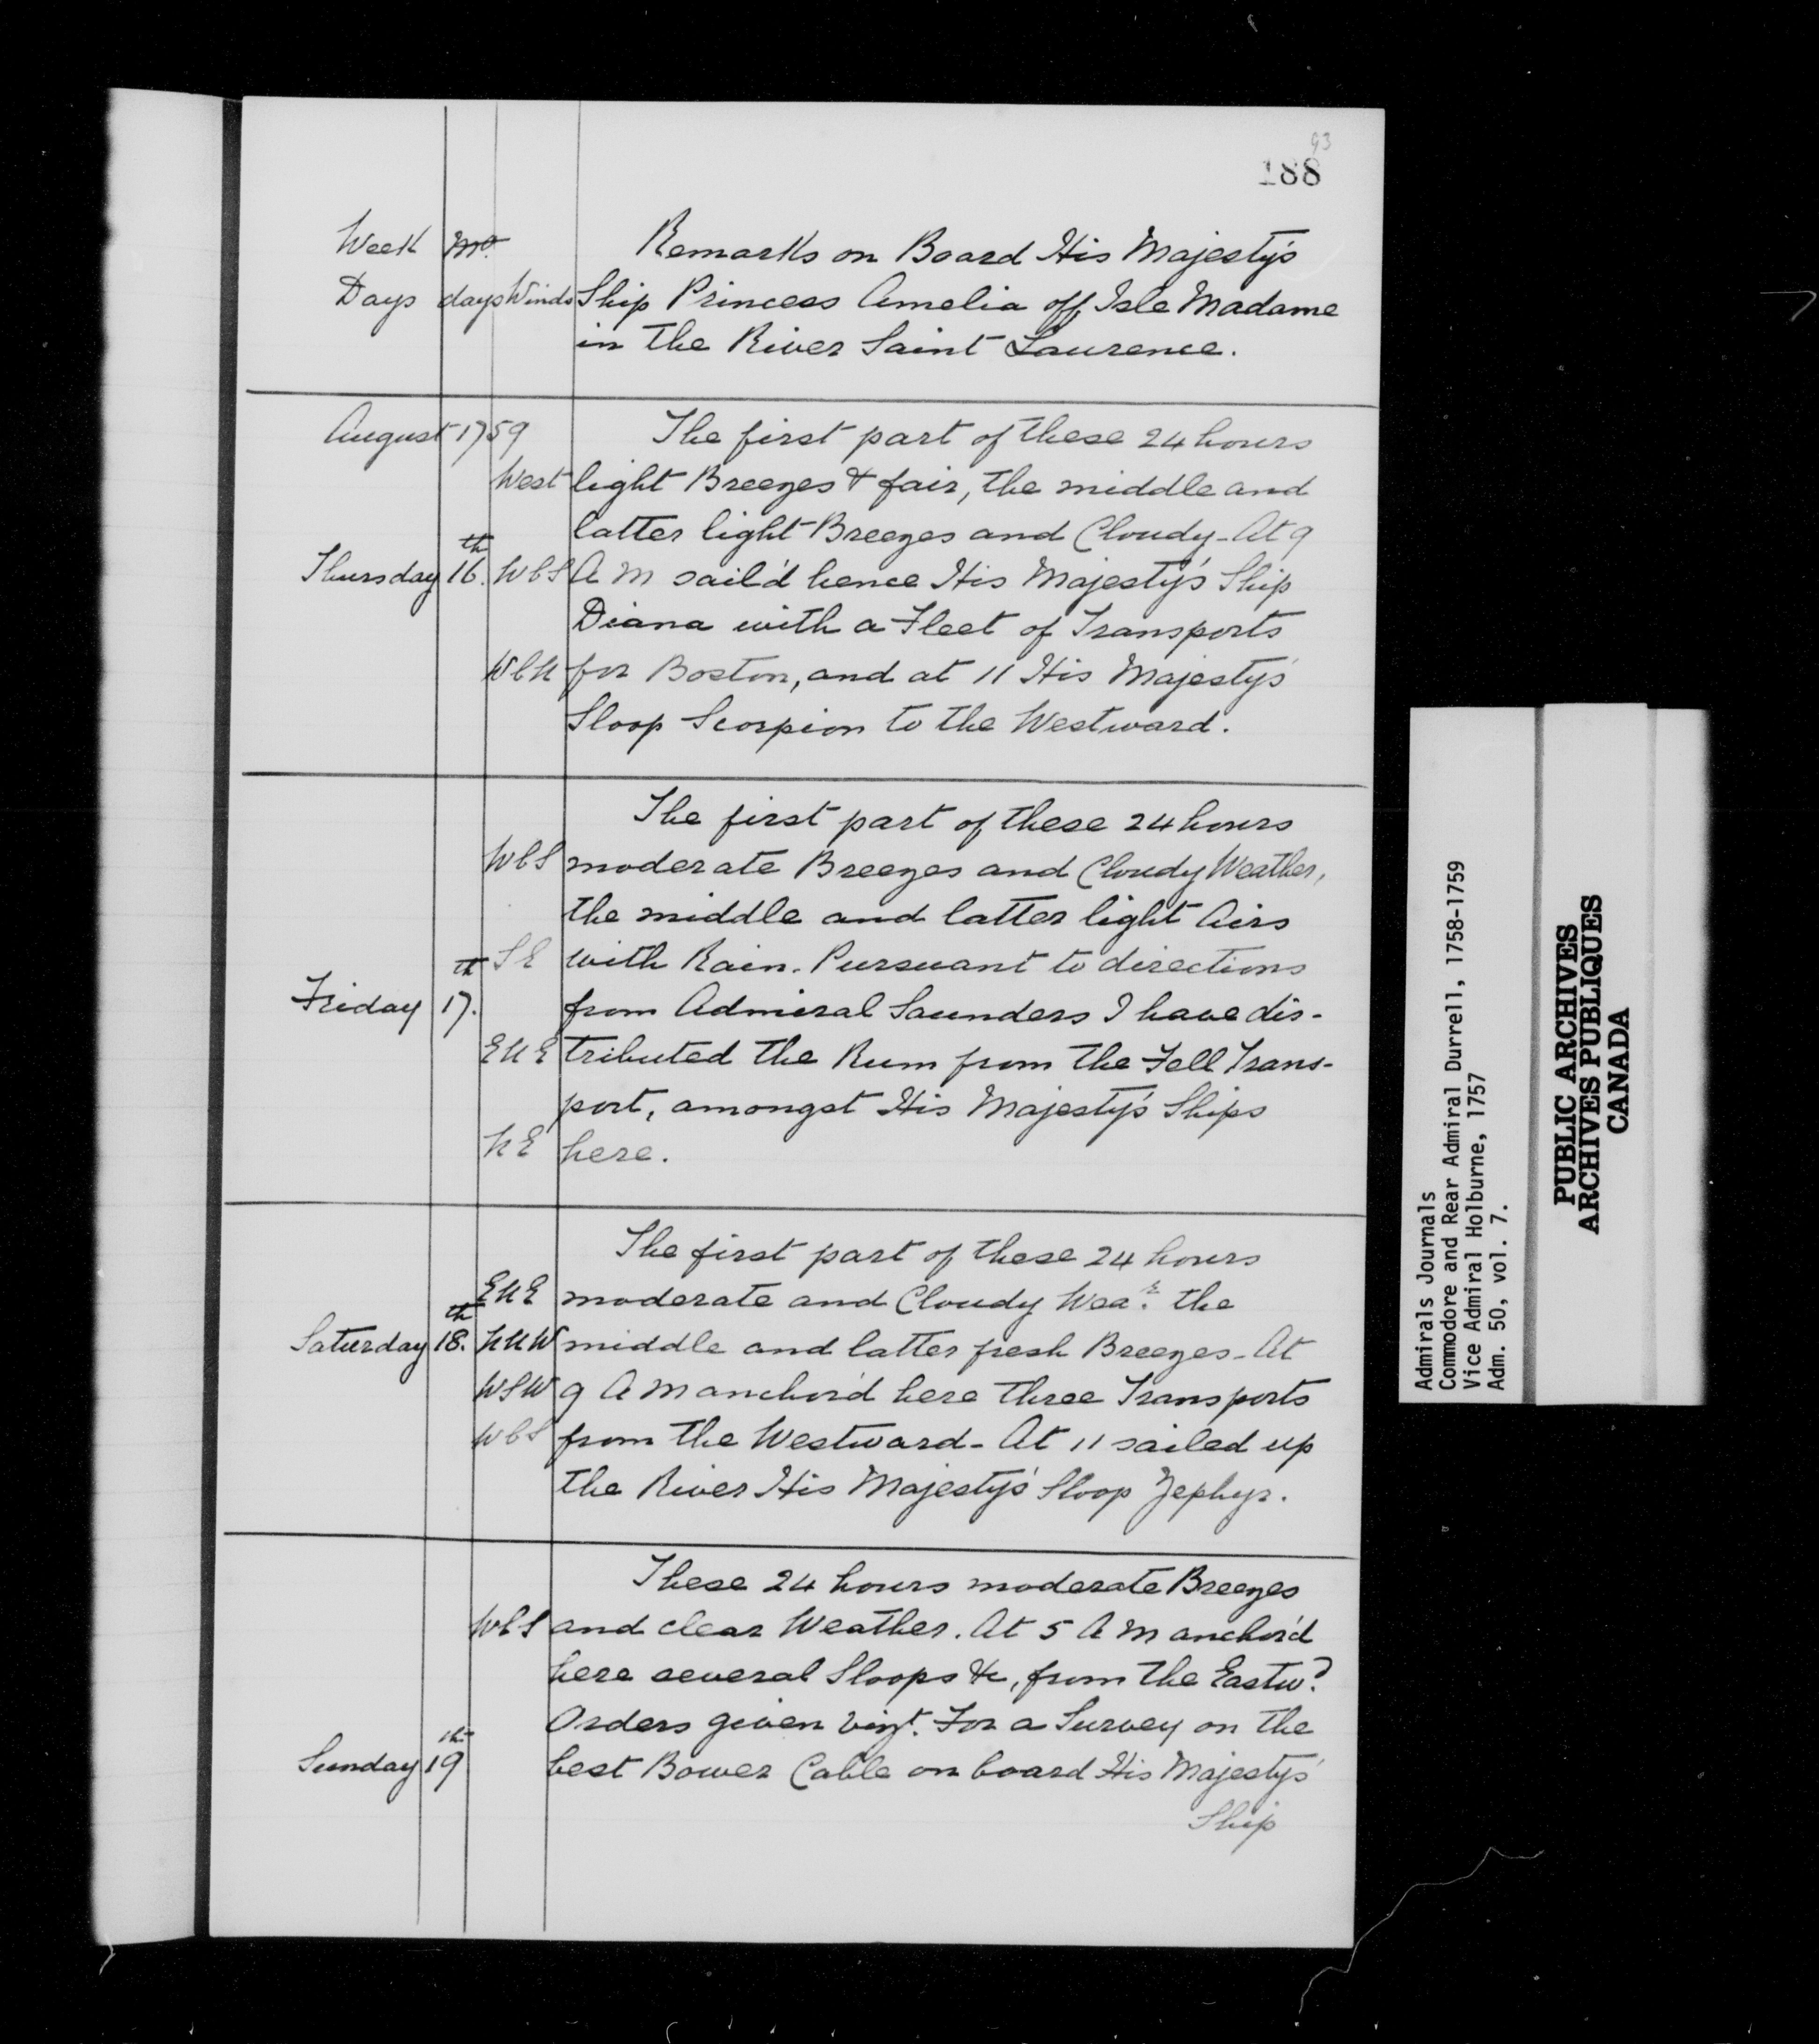 93
188
Week Mo. Remarks on Board His Majesty's
Days days Winds Ship Princess Amelia off Isle Madame
in the River Saint Laurence.
August 1759 The first part of these 24 hours
West light Breezes & fair, the middle and
latter light Breezes and Cloudy - At 9
Thursday 16th. WbS A M sail'd hence His Majesty's Ship
Diana with a Fleet of Transports
WbN for Boston, and at 11 His Majesty's
Sloop Scorpion to the Westward.
The first part of these 24 hours
WbS moderate Breezes and Cloudy Weather,
the middle and latter light Airs
SE with Rain. Pursuant to directions
Friday 17th. from Admiral Saunders I have dis-
ENE tributed the Rum from the Fell Trans-
port, amongst His Majesty's Ships
NE here.
The first part of these 24 hours
ENE moderate and Cloudy Wea.r the
Saturday 18th. NNW middle and latter fresh Breezes - At
WSW 9 A M anchor'd here three Transports
WbS from the Westward - At 11 sailed up
the River His Majesty's Sloop Zephyr.
These 24 hours moderate Breezes
WbS and clear Weather. At 5 A M anchor'd
here several Sloops &c, from the Eastw.d
Orders given vizt. For a Survey on the
Sunday 19th best Bower Cable on board His Majesty's
Ship
Admirals Journals
Commodore and Rear Admiral Durrell, 1758-1759
Vice Admiral Holburne, 1757
Adm. 50, vol. 7.
PUBLIC ARCHIVES
ARCHIVES PUBLIQUES
CANADA